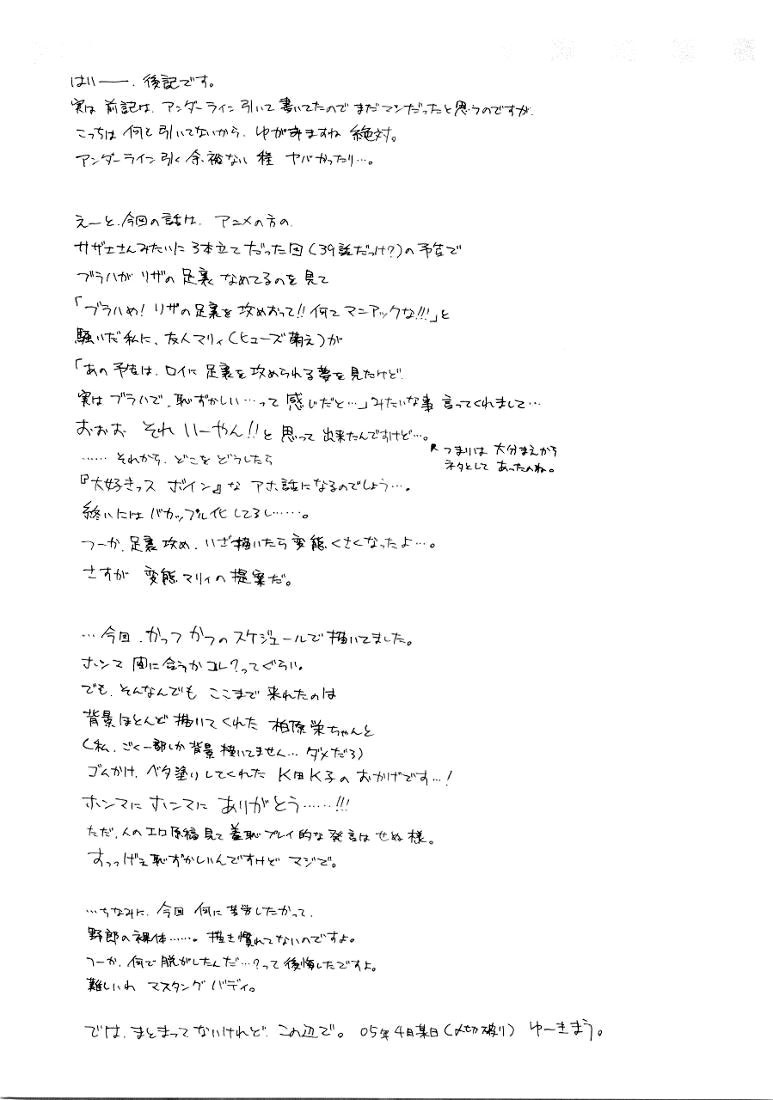 はいー――. 後記です。
実は 前記は、アンダーライン 引いて 書いてたので まだ マシだったと 思うのですが.
こっちは 何て 引いてないから. ゆがみますね 絶対。
アンダーライン 引く 余裕ない 程 ヤバかったり…。
えーと.今回の話は. アニメの方の.
サザエさんみたいに 3本立てだった回(39話だっけ?)の予告で
ブラハが リザの 足裏 なめてるのを 見て
「ブラハめ! リザの足裏を 攻めおって!! 何て マニアックな!!!」と
騒いだ 私に、友人マリィ(ヒューズ萌え)が
「あの 予告は、ロイに 足裏を攻められる 夢を 見たけど.
実は ブラハで、恥ずかしい…って 感じだと…」みたいな事 言ってくれまして…
おおお それ いーやん!!と 思って 出来たんですけど…。
つまりは 大分まえから
ネタとして あったのね。
…… それから、どこを どうしたら
『大好きっス ボイン』な アホ話になるのでしょう…。
終いには バカップル化 してるし……。
つーか.足裏攻め、いざ描いたら 変態くさくなったよ…。
さすが 変態マリィの提案だ。
…今回.かっつかつのスケジュールで描いてました。
ホンマ 間に合うか コレ?ってぐらい。
でも、そんなんでも ここまで 来れたのは
背景ほとんど 描いてくれた 柏原栄ちゃんと
(私、ごく一部しか背景 描いてません… ダメだろ)
ゴムかけ、ベタ塗りしてくれた K田K子の おかげです…!
ホンマに ホンマに ありがとう……!!!
ただ.人のエロ原稿見て 羞恥プレイ的な 発言は せぬ様。
すっっげえ恥ずかしいんですけど マジで。
…ちなみに、今回 何に 苦労したかって、
野郎の裸体……。描き慣れてないのですよ。
つーか、何で 脱がしたんだ…?って 後悔したですよ。
難しいわ マスタング バディ。
では、まとまってないけれど、この辺で。 05年4月某日(〆切破り) ゆーきまう。